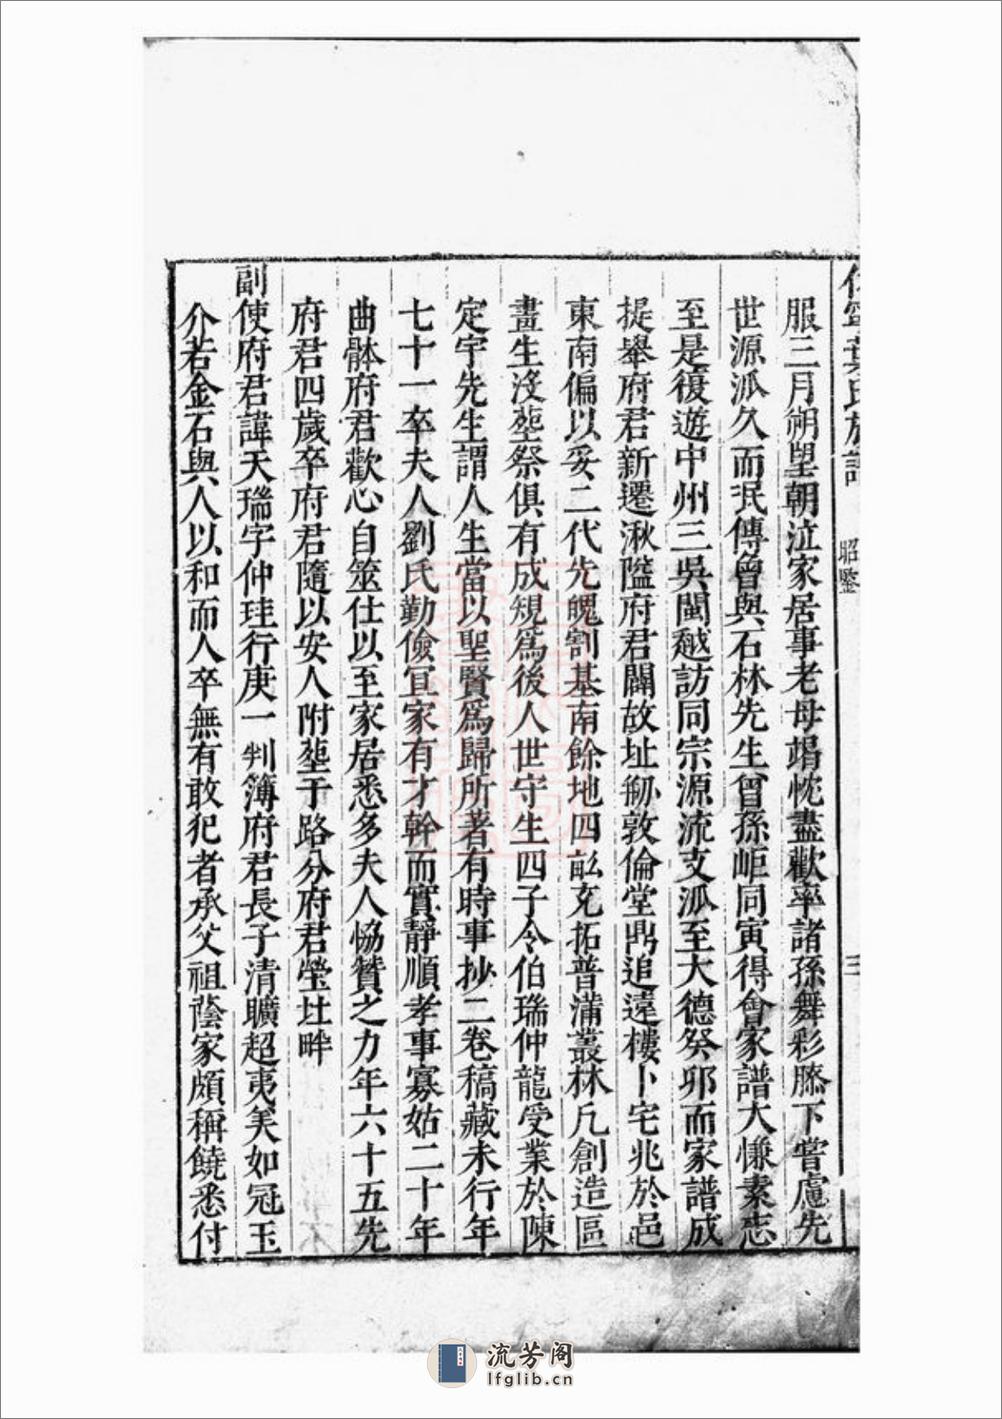 休寧葉氏族譜　昭鑒　三
服三月朔望朝泣家居事老母竭忱盡歡率諸孫舞彩膝下嘗慮先
世源派久而泯傳曾與石林先生曾孫岠同寅得會家譜大慊素志
至是復遊中州三吳閩越訪同宗源流支派至大德癸卯而家譜成
提舉府君新遷湫隘府君闢故址刱敦倫堂鼎追遠樓卜宅兆於邑
東南偏以妥二代先魄割基南餘地四畝充拓普滿叢林凡創造區
畫生沒塟祭俱有成規爲後人世守生四子令伯瑞仲龍受業於陳
定宇先生謂人生當以聖賢爲歸所著有時事抄二卷稿藏未行年
七十一卒夫人劉氏勤儉宜家有才幹而實靜順孝事寡姑二十年
曲體府君歡心自筮仕以至家居悉多夫人恊贊之力年六十五先
府君四歲卒府君隨以安人附塟于路分府君塋圵畔
副使府君諱天瑞字仲珪行庚一判簿府君長子清曠超夷美如冠玉
介若金石與人以和而人卒無有敢犯者承父祖蔭家頗稱饒悉付
流芳阁
lfglib.cn